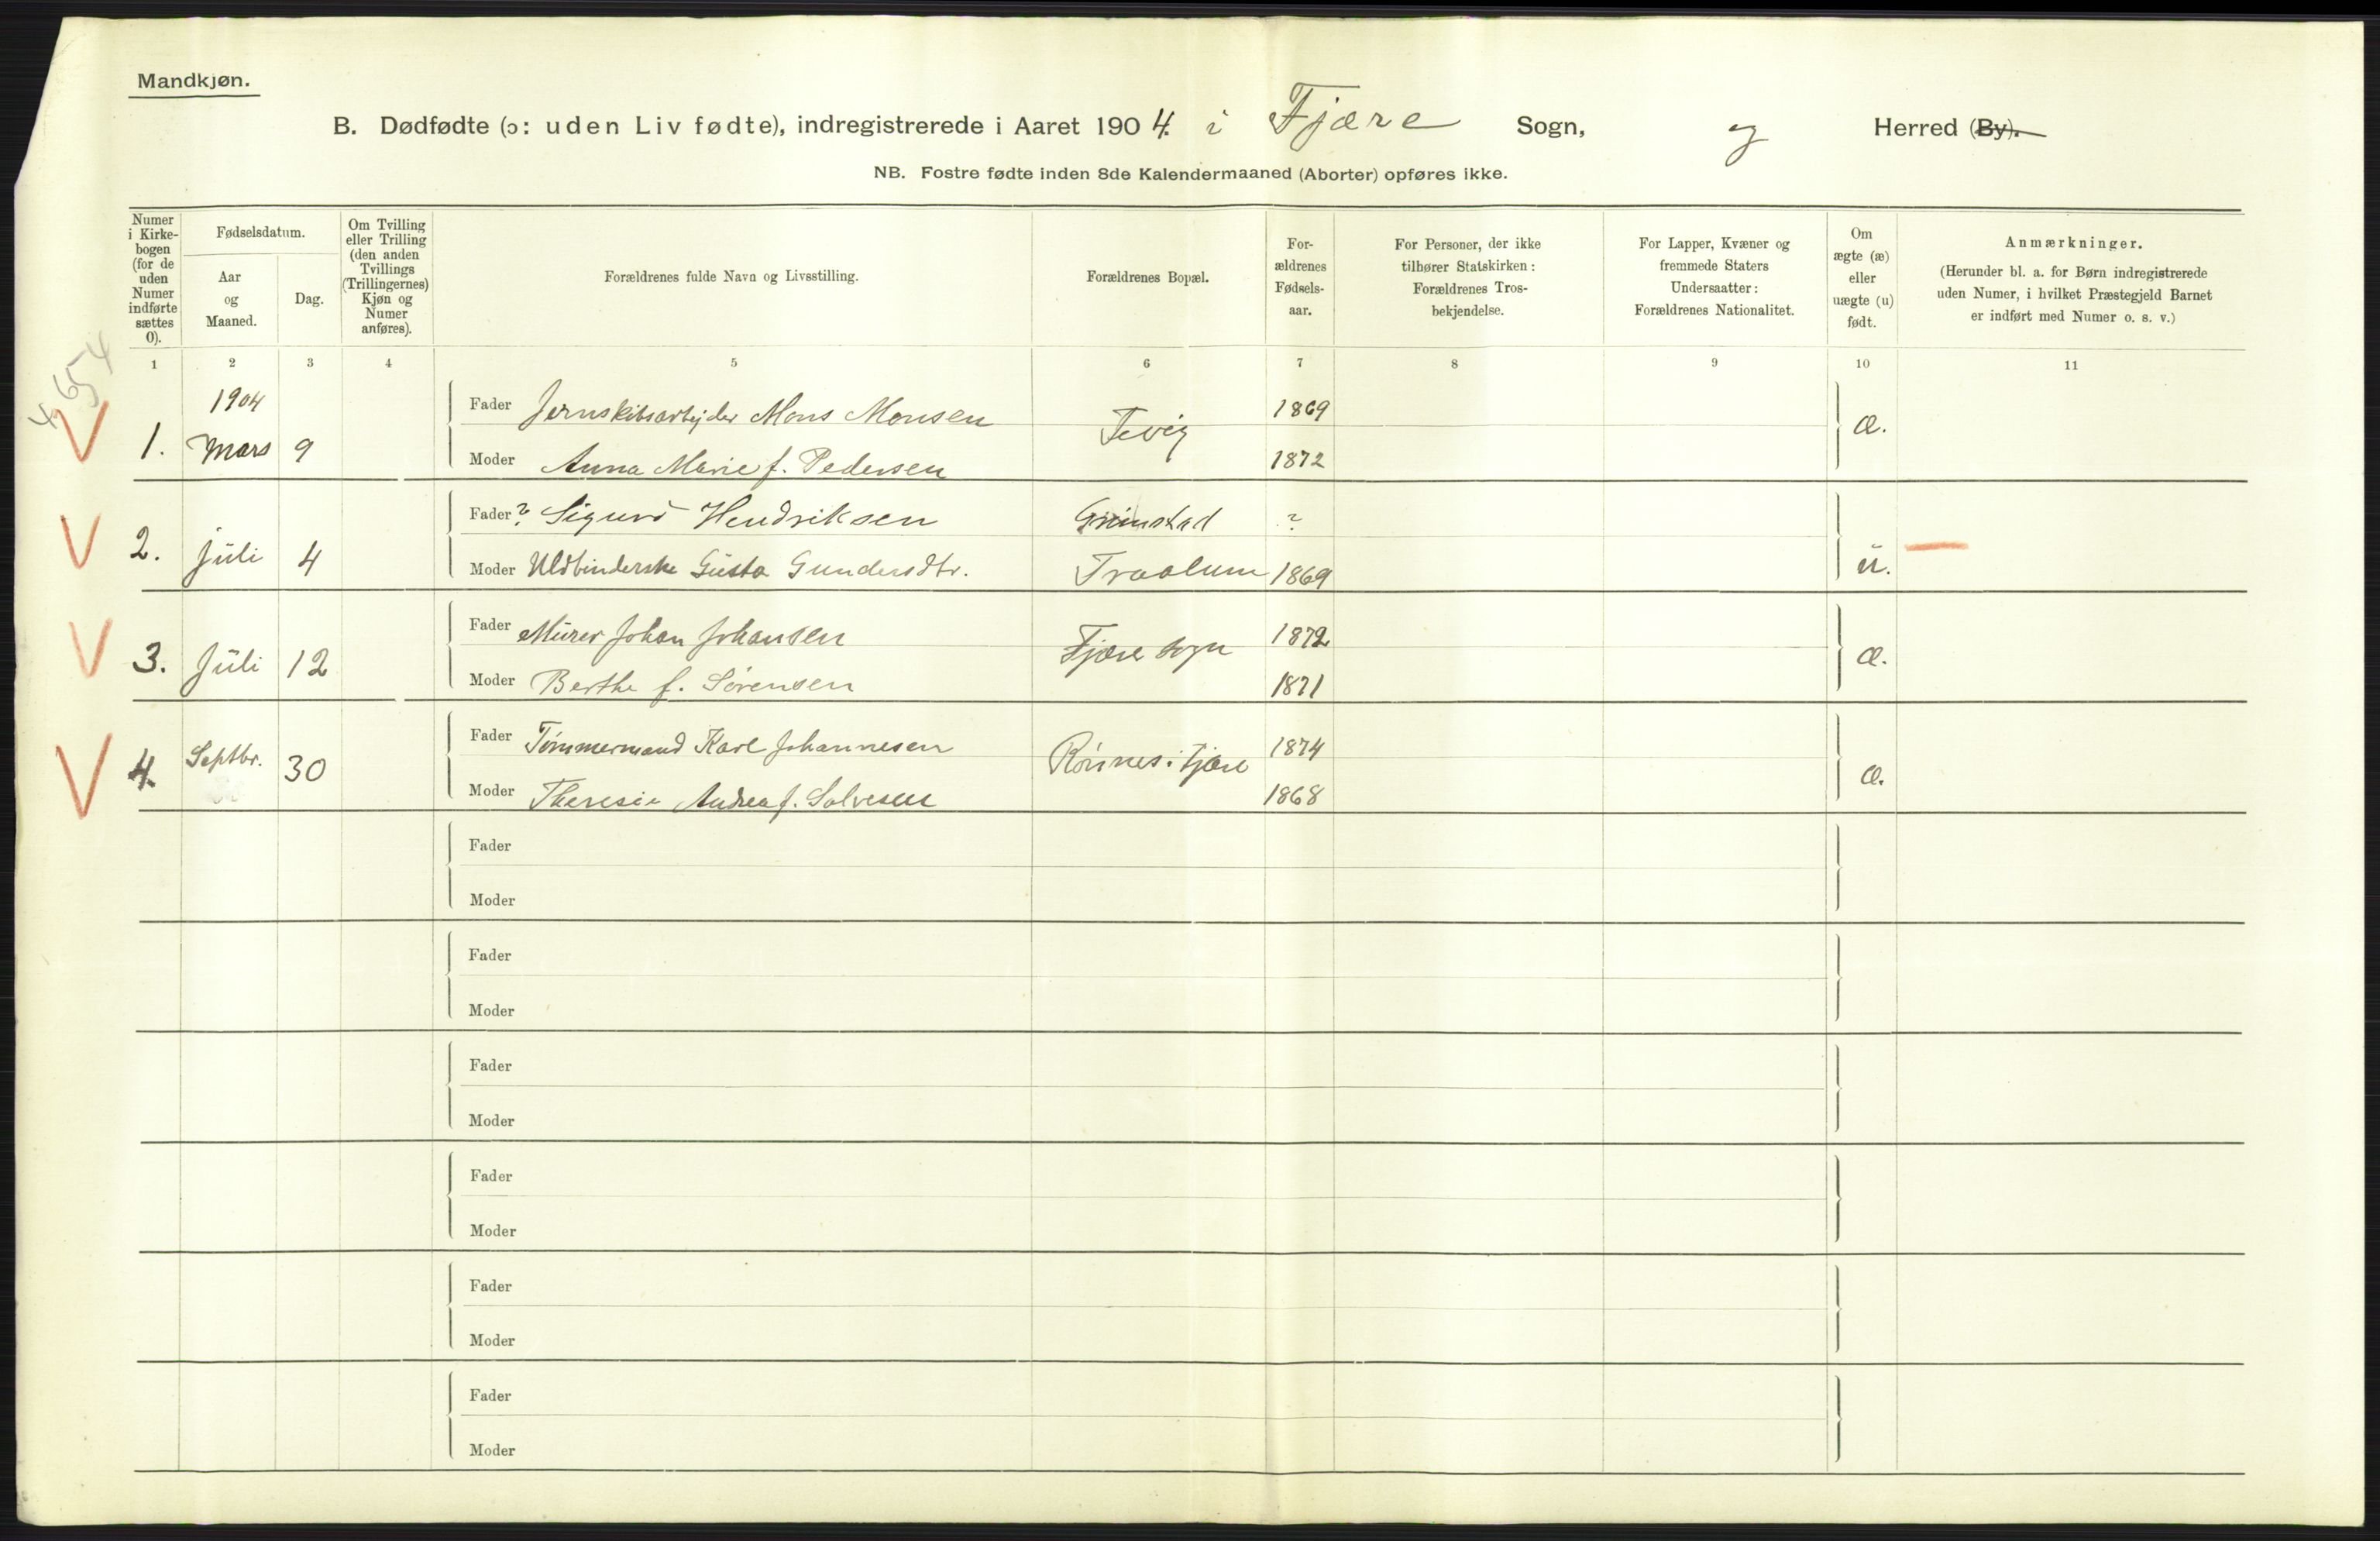 Mandkjøn.
B. Dødfødte (ɔ: uden Liv fødte), indregistrerede i Aaret 1904. i Fjære Sogn, og Herred (By).
NB. Fostre fødte inden 8de Kalendermaaned (Aborter) opføres ikke.
Numer i Kirke-bogen (for de uden Numer indførte sættes 0).
Fødselsdatum.
Aar og Maaned.
Dag.
Om Tvilling eller Trilling (den anden Tvillings (Trillingernes) Kjøn og Numer anføres).
Forældrenes fulde Navn og Livsstilling.
Forældrenes Bopæl.
For-ældrenes Fødsels-aar.
For Personer, der ikke tilhører Statskirken: Forældrenes Tros-bekjendelse.
For Lapper, Kvæner og fremmede Staters Undersaatter: Forældrenes Nationalitet.
Om ægte (æ) eller uægte (u) født.
Anmærkninger.
(Herunder bl. a. for Børn indregistrerede uden Numer, i hvilket Præstegjeld Barnet er indført med Numer o. s. v.)
1 2 3 4 5 6 7 8 9 10 11
4654
1904
Fader Jernskibsarbejder Mons Monsen 1869
1. Mars 9 Fevig æ.
Moder Anna Marie f. Pedersen 1872
Fader ? Sigurd Hendriksen Grimstad ?
2. Juli 4 Moder Uldbinderske Gusta Gundersdtr. Traalum 1869 u.
Fader Murer Johan Johansen 1872
3. Juli 12 Fjære sogn æ.
Moder Berthe f. Sørensen 1871
Fader Tømmermand Karl Johannesen 1874
4. Septbr. 30 Rønnes i Fjære æ.
Moder Theresie Andrea f. Salvesen 1868
Fader
Moder
Fader
Moder
Fader
Moder
Fader
Moder
Fader
Moder
Fader
Moder